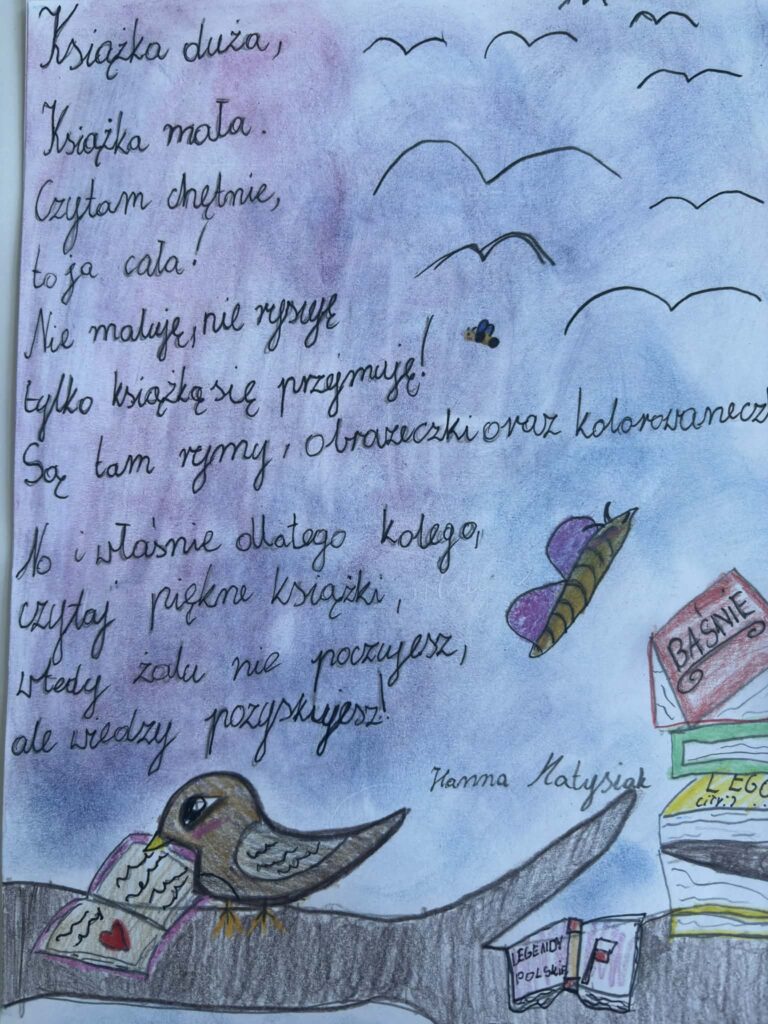 Książka duża,
Książka mała.
Czytam chętnie,
to ja cała!
Nie maluję, nie rysuję
tylko książką się przejmuję!
Są tam rymy, obrazeczki oraz kolorowaneczk
No i właśnie dlatego kolego,
czytaj piękne książki,
wtedy żalu nie poczujesz,
ale wiedzy pozyskujesz!
Hanna Matysiak
BAŚNIE
LEGO
city:)
LEGENDY
POLSKIE